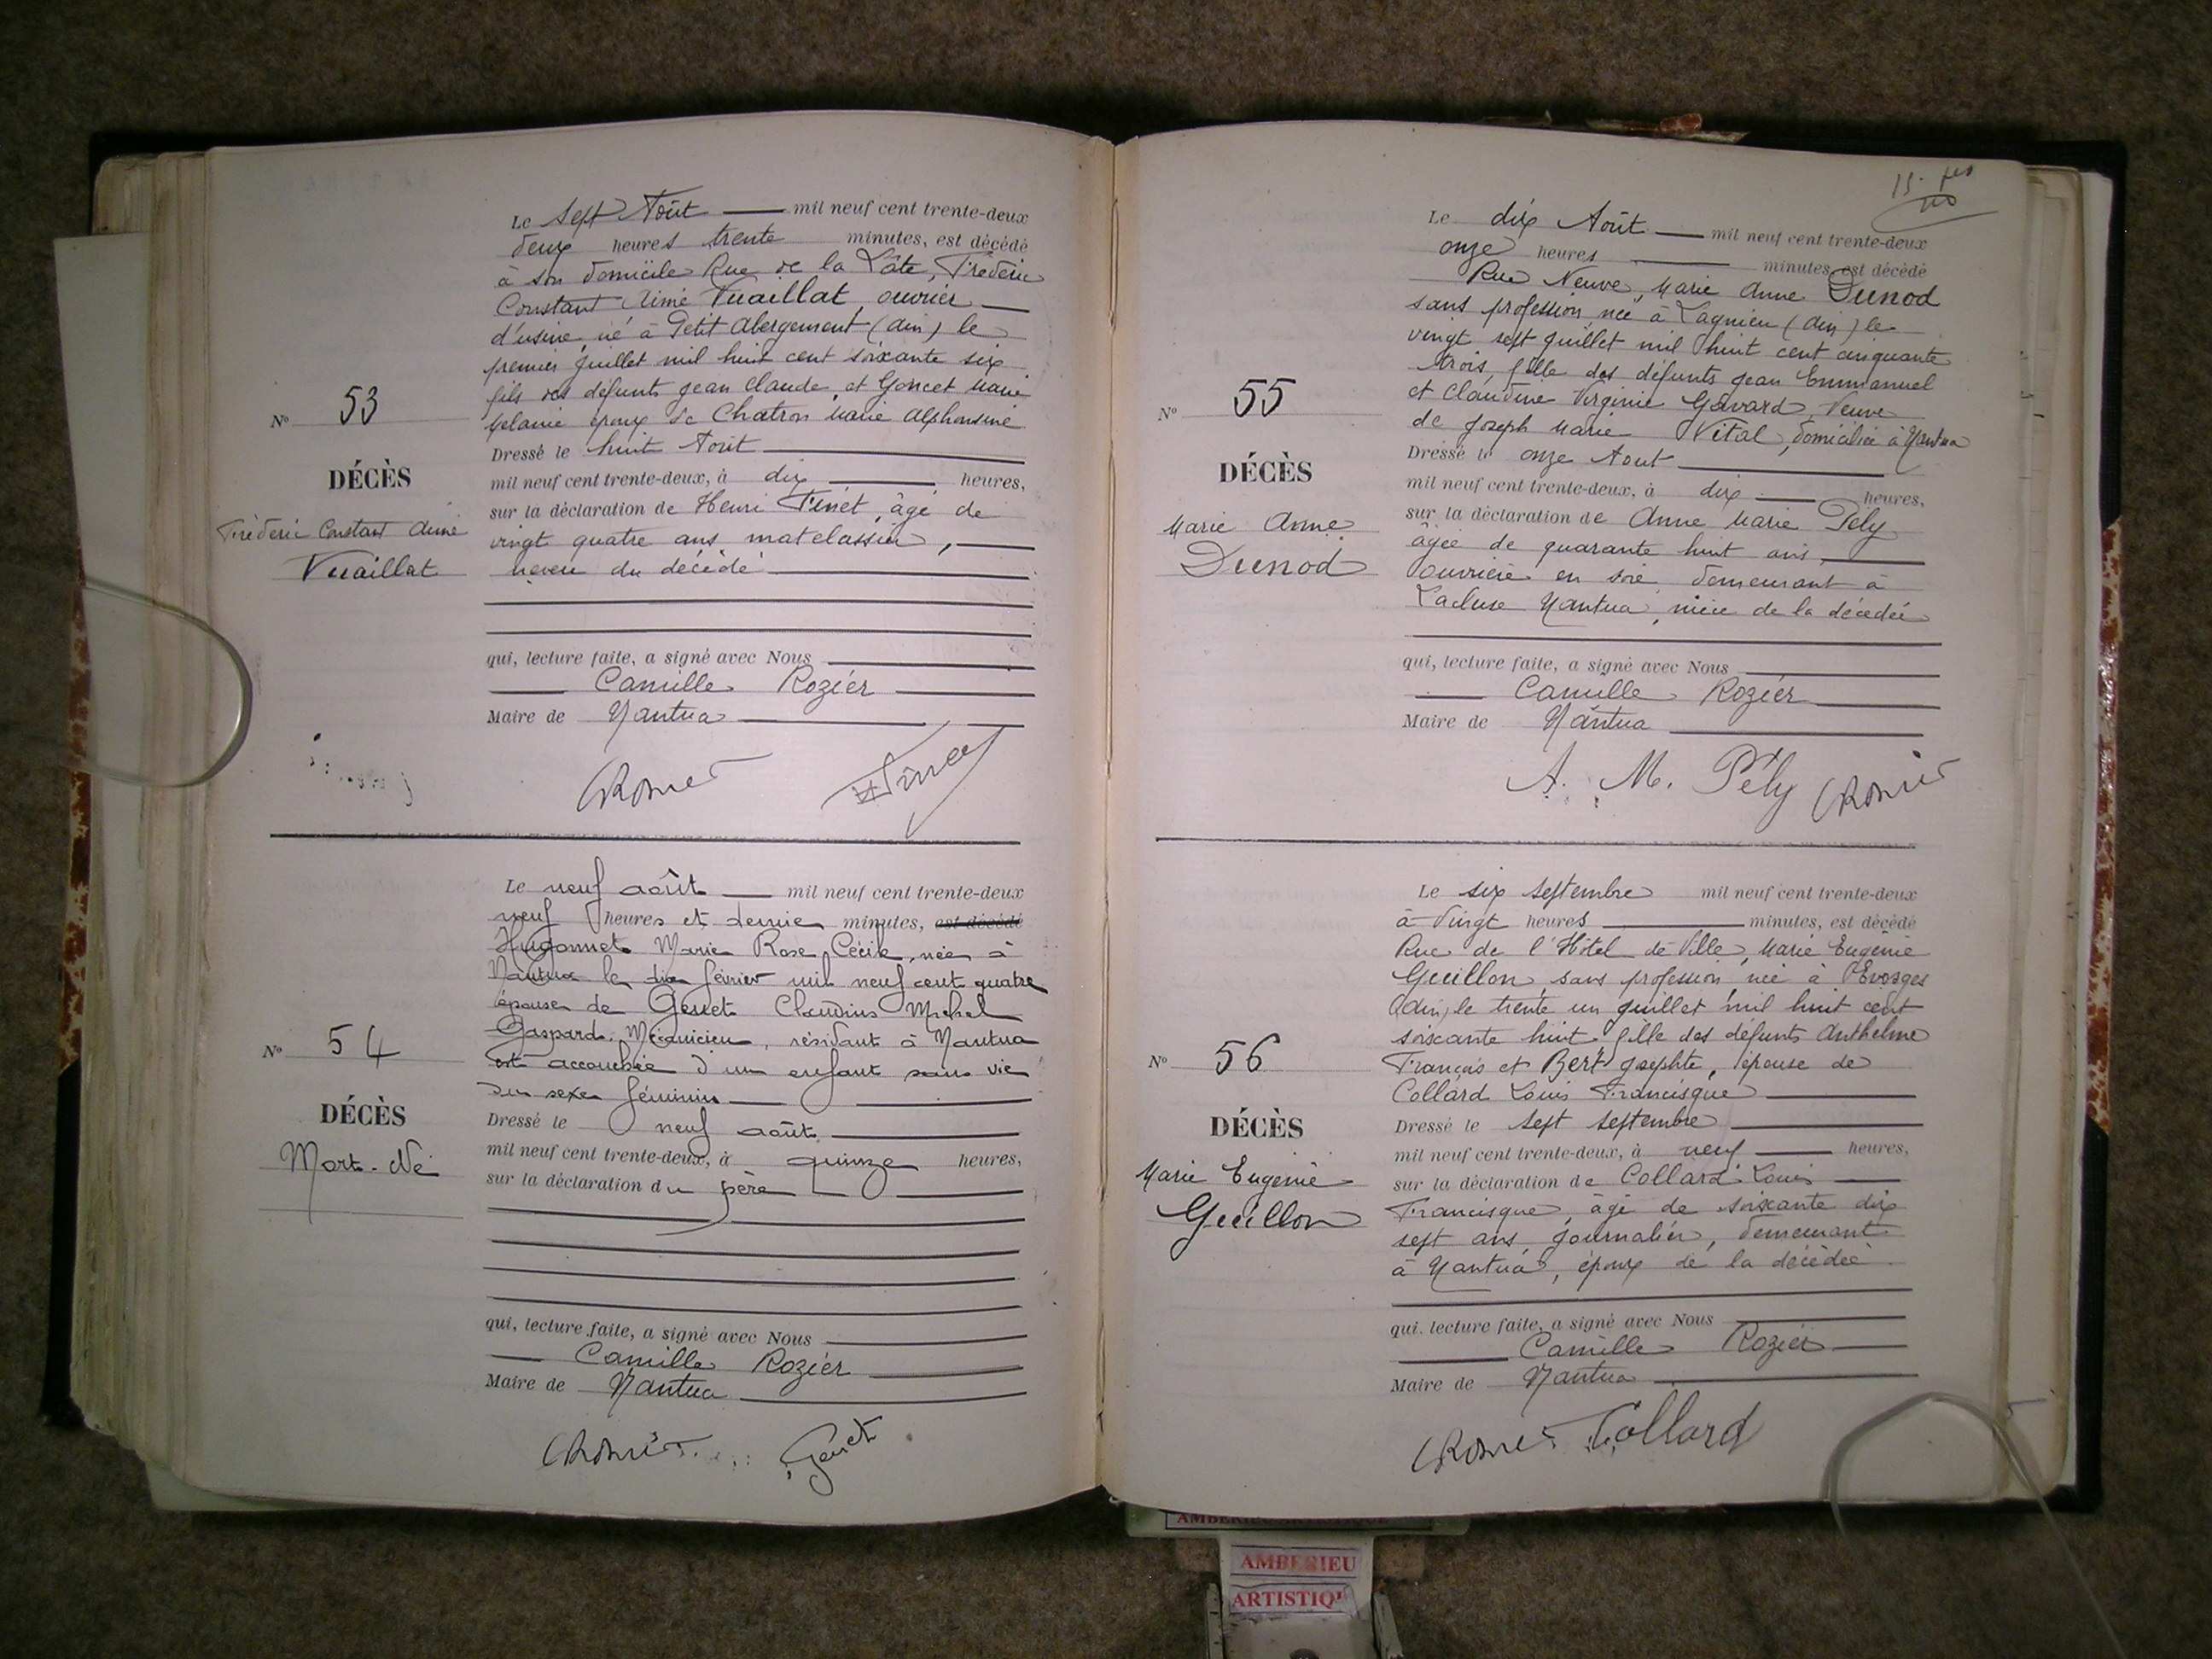 Le sept Août mil neuf cent trente-deux
deux heures trente minutes, est décédé
à son domicile Rue de la Côte, Frédéric
Constant Aimé Vuaillat, ouvrier
d'usine, né à Petit Abergement (Ain) le
premier juillet mil huit cent soixante six
fils des défunts Jean Claude, et Goncet Marie
Mélanie époux de Chatron Marie Alphonsine
N° 53
Dressé le huit Août
DÉCÈS
mil neuf cent trente-deux, à dix heures,
sur la déclaration de Henri Tinet, âgé de
Frédéric Constant Aimé
vingt quatre ans matelassier,
Vuaillat
neveu du décédé
qui, lecture faite, a signé avec Nous
Camille Rozier
Maire de Nantua
Le neuf août mil neuf cent trente-deux
neuf heures et demie minutes, est décédé
Hugonnet Marie Rose Cécile, née à
Nantua le dix février mil neuf cent quatre
épouse de Genet Claudius Michel
Gaspard, Mécanicien, résidant à Nantua
est accouchée d'un enfant sans vie
du sexe féminin
N° 54
DÉCÈS
Dressé le neuf août
mil neuf cent trente-deux, à quinze heures,
Mort-Né
sur la déclaration du père
qui, lecture faite, a signé avec Nous
Camille Rozier
Maire de Nantua
Genet
Le dix Août mil neuf cent trente-deux
onze heures minutes, est décédé
Rue Neuve, Marie Anne Dunod
sans profession née à Lagnieu (Ain) le
vingt sept juillet mil huit cent cinquante
trois, fille des défunts Jean Emmanuel
et Claudine Virginie Gavard, Veuve
de Joseph Marie Vital, domiciliée à Nantua
N° 55
Dressé le onze Août
DÉCÈS
mil neuf cent trente-deux, à dix heures,
sur la déclaration de Anne Marie Pély
Marie Anne
âgée de quarante huit ans,
Dunod
ouvrière en soie demeurant à
Lacluse Nantua, nièce de la décédée
qui, lecture faite, a signé avec Nous
Camille Rozier
Maire de Nantua
A. M. Pély
Le six septembre mil neuf cent trente-deux
à Vingt heures minutes, est décédé
Rue de l'Hôtel de Ville, Marie Eugénie
Guillon, sans profession, née à Évosges
(Ain) le trente un juillet mil huit cent
soixante huit fille des défunts Anthelme
François et Bert Josephte, épouse de
Collard Louis Francisque
N° 56
Dressé le sept septembre
DÉCÈS
mil neuf cent trente-deux, à neuf heures,
sur la déclaration de Collard Louis
Marie Eugénie
Francisque, âgé de soixante dix
Guillon
sept ans, journalier, demeurant
à Nantua, époux de la décédée
qui, lecture faite, a signé avec Nous
Camille Rozier
Maire de Nantua
Collard
AMBERIEU ARTISTIQUE
AMBERIEU
ARTISTIQU